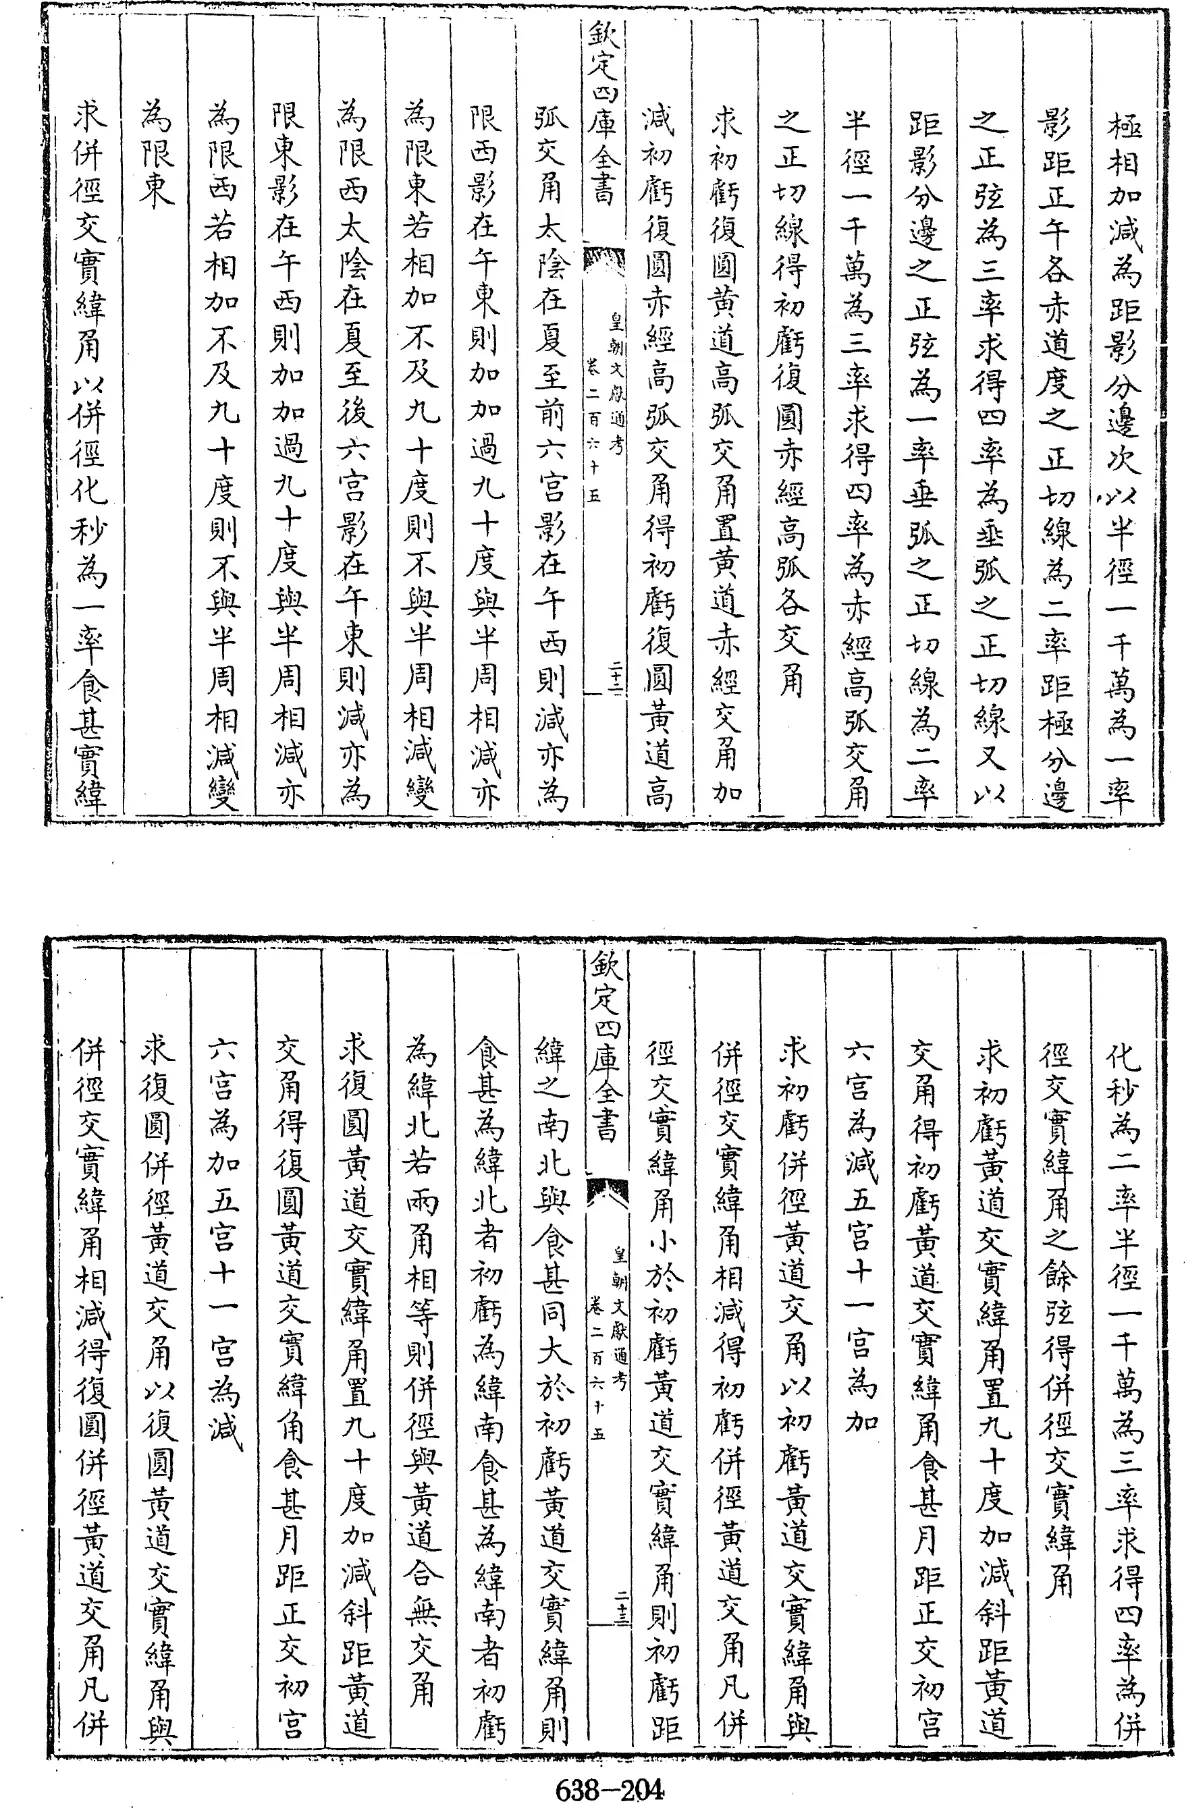 極相加減為距影分邊次以半徑一千萬為一率
影距正午各赤道度之正切線為二率距極分邊
之正弦為三率求得四率為垂弧之正切線又以
距影分邊之正弦為一率垂弧之正切線為二率
半徑一千萬為三率求得四率為赤經高弧交角
之正切線得初虧復圓赤經高弧各交角
求初虧復圓黃道高弧交角置黃道赤經交角加
減初虧復圓赤經高弧交角得初虧復圓黃道高
欽定四庫全書
皇朝文獻通考
卷二百六十五
二十二
弧交角太陰在夏至前六宮影在午西則減亦為
限西影在午東則加加過九十度與半周相減亦
為限東若相加不及九十度則不與半周相減變
為限西太陰在夏至後六宮影在午東則減亦為
限東影在午西則加加過九十度與半周相減亦
為限西若相加不及九十度則不與半周相減變
為限東
求併徑交實緯角以併徑化秒為一率食甚實緯
化秒為二率半徑一千萬為三率求得四率為併
徑交實緯角之餘弦得併徑交實緯角
求初虧黃道交實緯角置九十度加減斜距黃道
交角得初虧黃道交實緯角食甚月距正交初宮
六宮為減五宮十一宮為加
求初虧併徑黃道交角以初虧黃道交實緯角與
併徑交實緯角相減得初虧併徑黃道交角凡併
徑交實緯角小於初虧黃道交實緯角則初虧距
欽定四庫全書
皇朝文獻通考
卷二百六十五
二十三
緯之南北與食甚同大於初虧黃道交實緯角則
食甚為緯北者初虧為緯南食甚為緯南者初虧
為緯北若兩角相等則併徑與黃道合無交角
求復圓黃道交實緯角置九十度加減斜距黃道
交角得復圓黃道交實緯角食甚月距正交初宮
六宮為加五宮十一宮為減
求復圓併徑黃道交角以復圓黃道交實緯角與
併徑交實緯角相減得復圓併徑黃道交角凡併
638-204